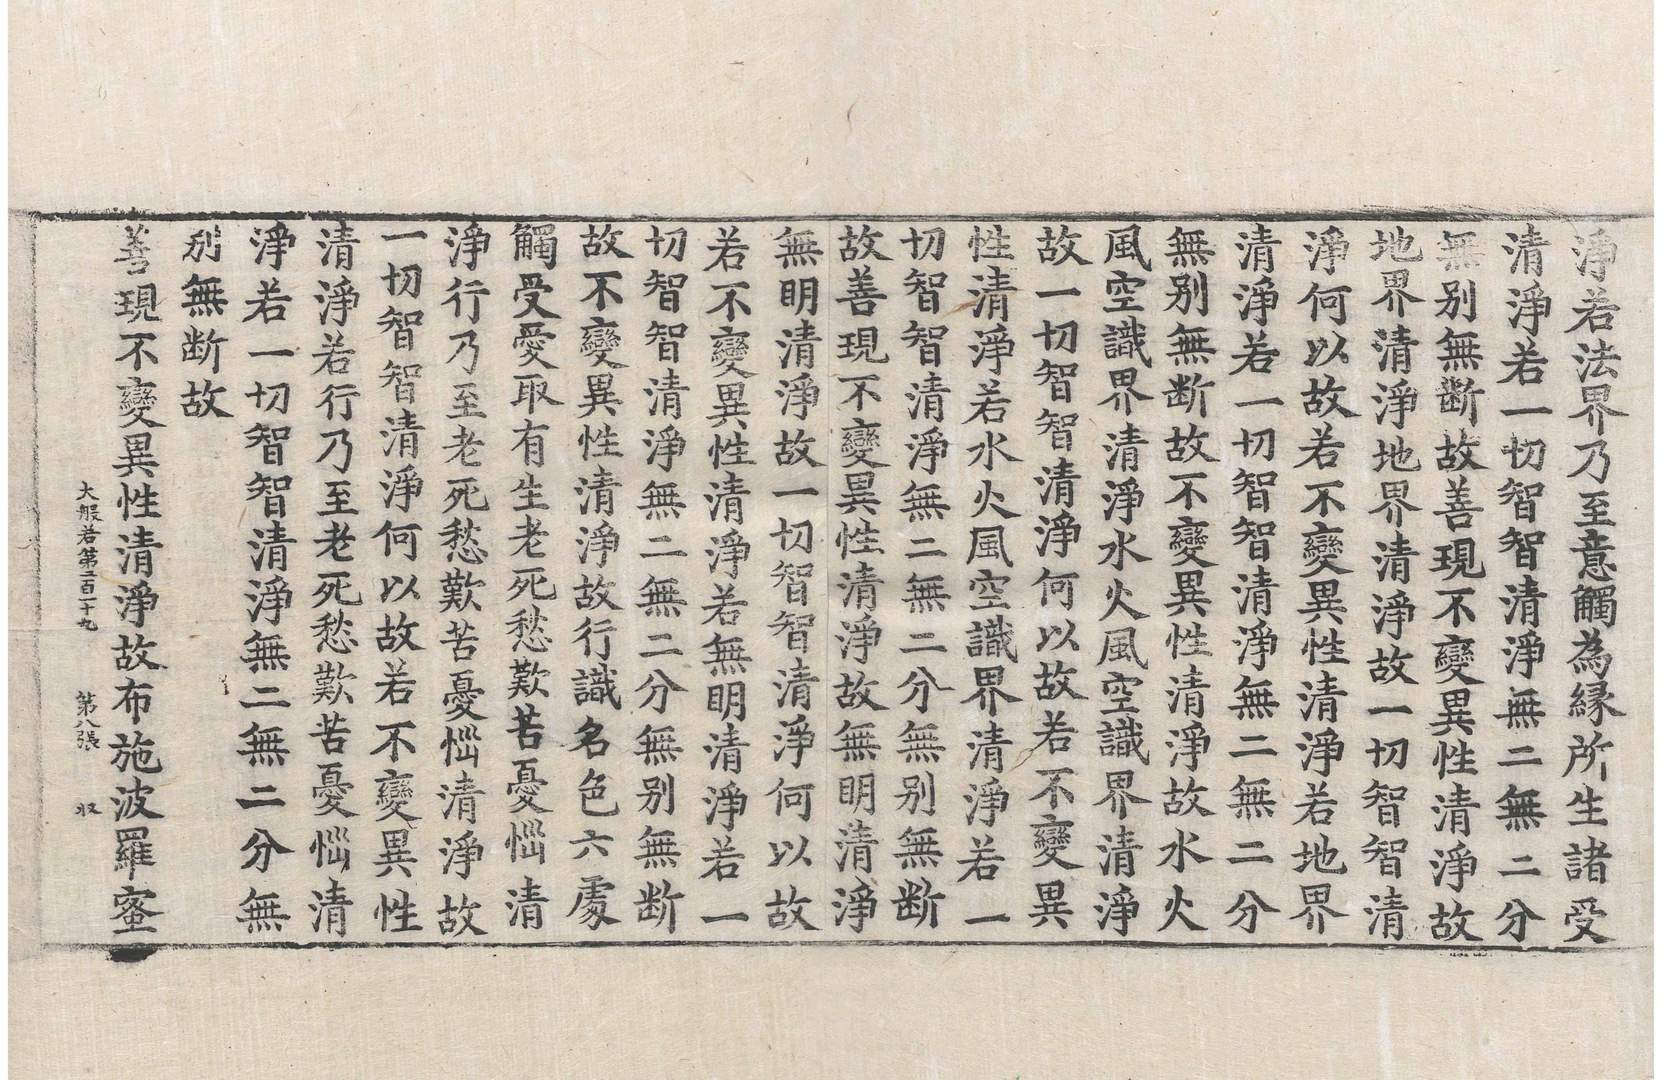 淨若法界乃至意觸為縁所生諸受
清淨若一切智智清淨無二無二分
無別無断故善現不變異性清淨故
地界清淨地界清淨故一切智智清
淨何以故若不變異性清淨若地界
清淨若一切智智清淨無二無二分
無別無断故不變異性清淨故水火
風空識界清淨水火風空識界清淨
故一切智智清淨何以故若不變異
性清淨若水火風空識界清淨若一
切智智清淨無二無二分無別無断
故善現不變異性清淨故無明清淨
無明清淨故一切智智清淨何以故
若不變異性清淨若無明清淨若一
切智智清淨無二無二分無別無断
故不變異性清淨故行識名色六處
觸受愛取有生老死愁歎苦憂惱清
淨行乃至老死愁歎苦憂惱清淨故
一切智智清淨何以故若不變異性
清淨若行乃至老死愁歎苦憂惱清
淨若一切智智清淨無二無二分無
别無断故
善現不變異性清淨故布施波羅蜜
大般若第二百二十九 第八張 収